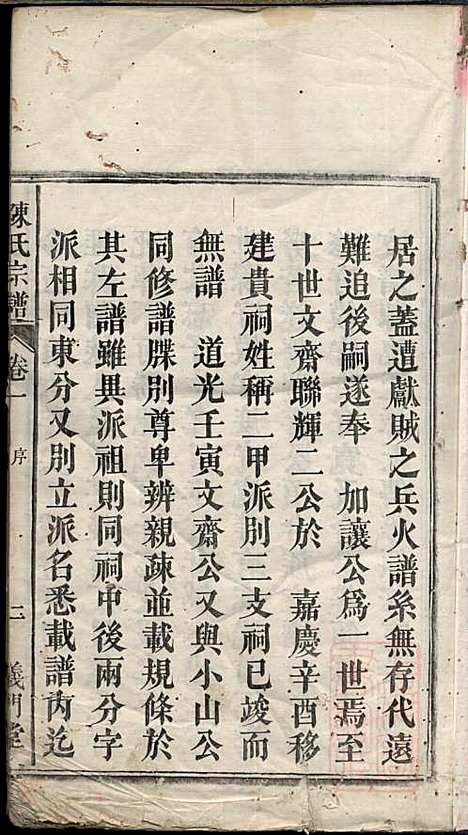 居之蓋遭獻賊之兵火譜系無存代遠
難追後嗣遂奉　加讓公爲一世焉至
十世文齋聯輝二公於　嘉慶辛酉移
建貴祠姓稱二甲派別三支祠已竣而
無譜　道光壬寅文齋公又與小山公
同修譜牒別尊卑辨親疎並載規條於
其左譜雖具派祖則同祠中後兩分字
派相同東分又別立派名悉載譜內迄
陳氏宗譜　卷一　序　二　義門堂